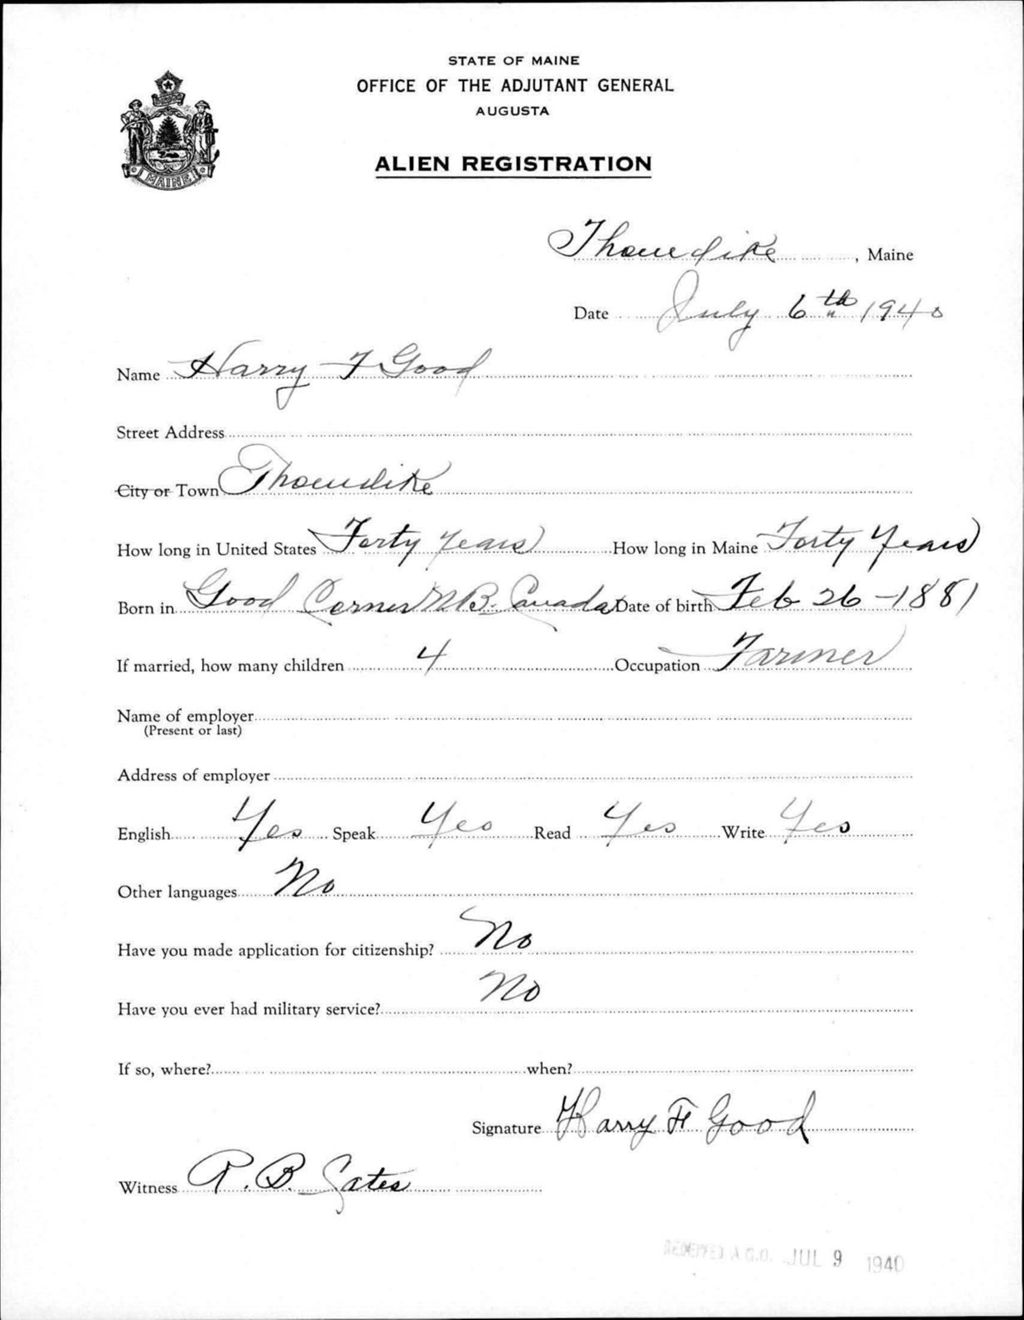 STATE OF MAINE
OFFICE OF THE ADJUTANT GENERAL
AUGUSTA
MAINE
ALIEN REGISTRATION
Thorndike, Maine
Date July 6th 1940
Name Harry F Good
Street Address
City or Town Thorndike
How long in United States Forty Years How long in Maine Forty Years
Born in Good Corner N.B. Canada Date of birth Feb 26 - 1881
If married, how many children 4 Occupation Farmer
Name of employer
(Present or last)
Address of employer
English Yes Speak Yes Read Yes Write Yes
Other languages No
Have you made application for citizenship? No
Have you ever had military service? No
If so, where? when?
Signature Harry F Good
Witness R. B. Gates
RECEIVED A.G.O. JUL 9 1940